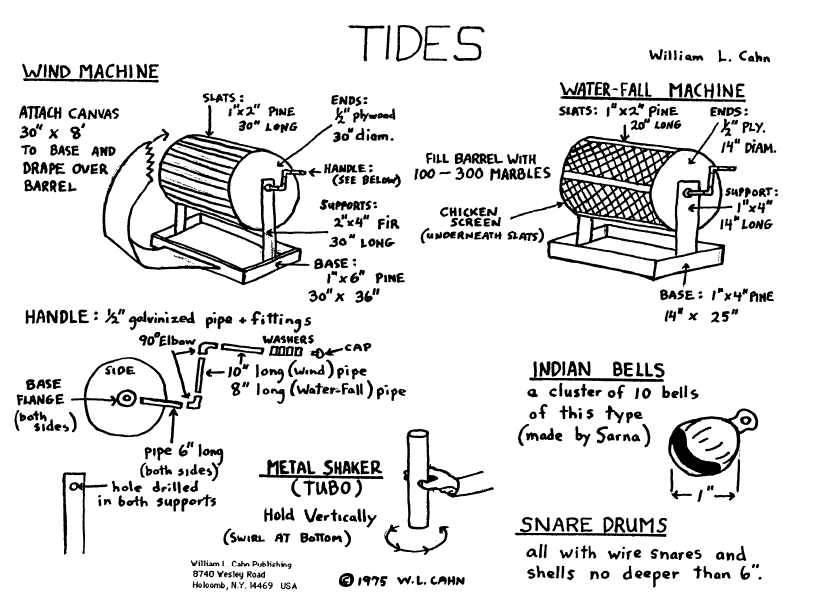 TIDES
William L. Cahn
WIND MACHINE
ATTACH CANVAS
30" x 8'
TO BASE AND
DRAPE OVER
BARREL
SLATS:
1"x2" PINE
30" LONG
ENDS:
½" plywood
30" diam.
HANDLE:
(SEE BELOW)
SUPPORTS:
2"x4" FIR
30" LONG
BASE:
1"x6" PINE
30" x 36"
WATER-FALL MACHINE
SLATS: 1"x2" PINE
20" LONG
ENDS:
½" PLY.
14" DIAM.
FILL BARREL WITH
100 – 300 MARBLES
CHICKEN
SCREEN
(UNDERNEATH SLATS)
SUPPORT:
1"x4"
14" LONG
BASE: 1"x4" PINE
14" x 25"
HANDLE: ½" galvinized pipe + fittings
90° Elbow
WASHERS
CAP
SIDE
10" long (Wind) pipe
8" long (Water-Fall) pipe
BASE
FLANGE
(both
sides)
pipe 6" long
(both sides)
hole drilled
in both supports
METAL SHAKER
(TUBO)
Hold Vertically
(SWIRL AT BOTTOM)
INDIAN BELLS
a cluster of 10 bells
of this type
(made by Sarna)
1"
SNARE DRUMS
all with wire snares and
shells no deeper than 6".
William L. Cahn Publishing
8740 Wesley Road
Holcomb, N.Y. 14469 USA
© 1975 W.L. CAHN